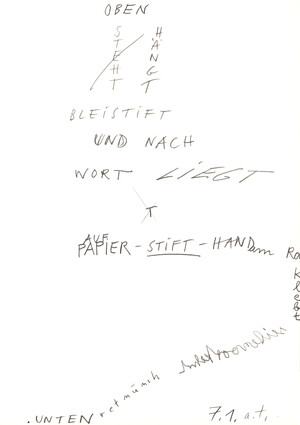 OBEN
STEHT HÄNGT
BLEISTIFT
UND NACH
WORT LIEGT
T
AUF
PAPIER - STIFT - HAND am Ra
klebt
.UNTEN 7.1. a.t.